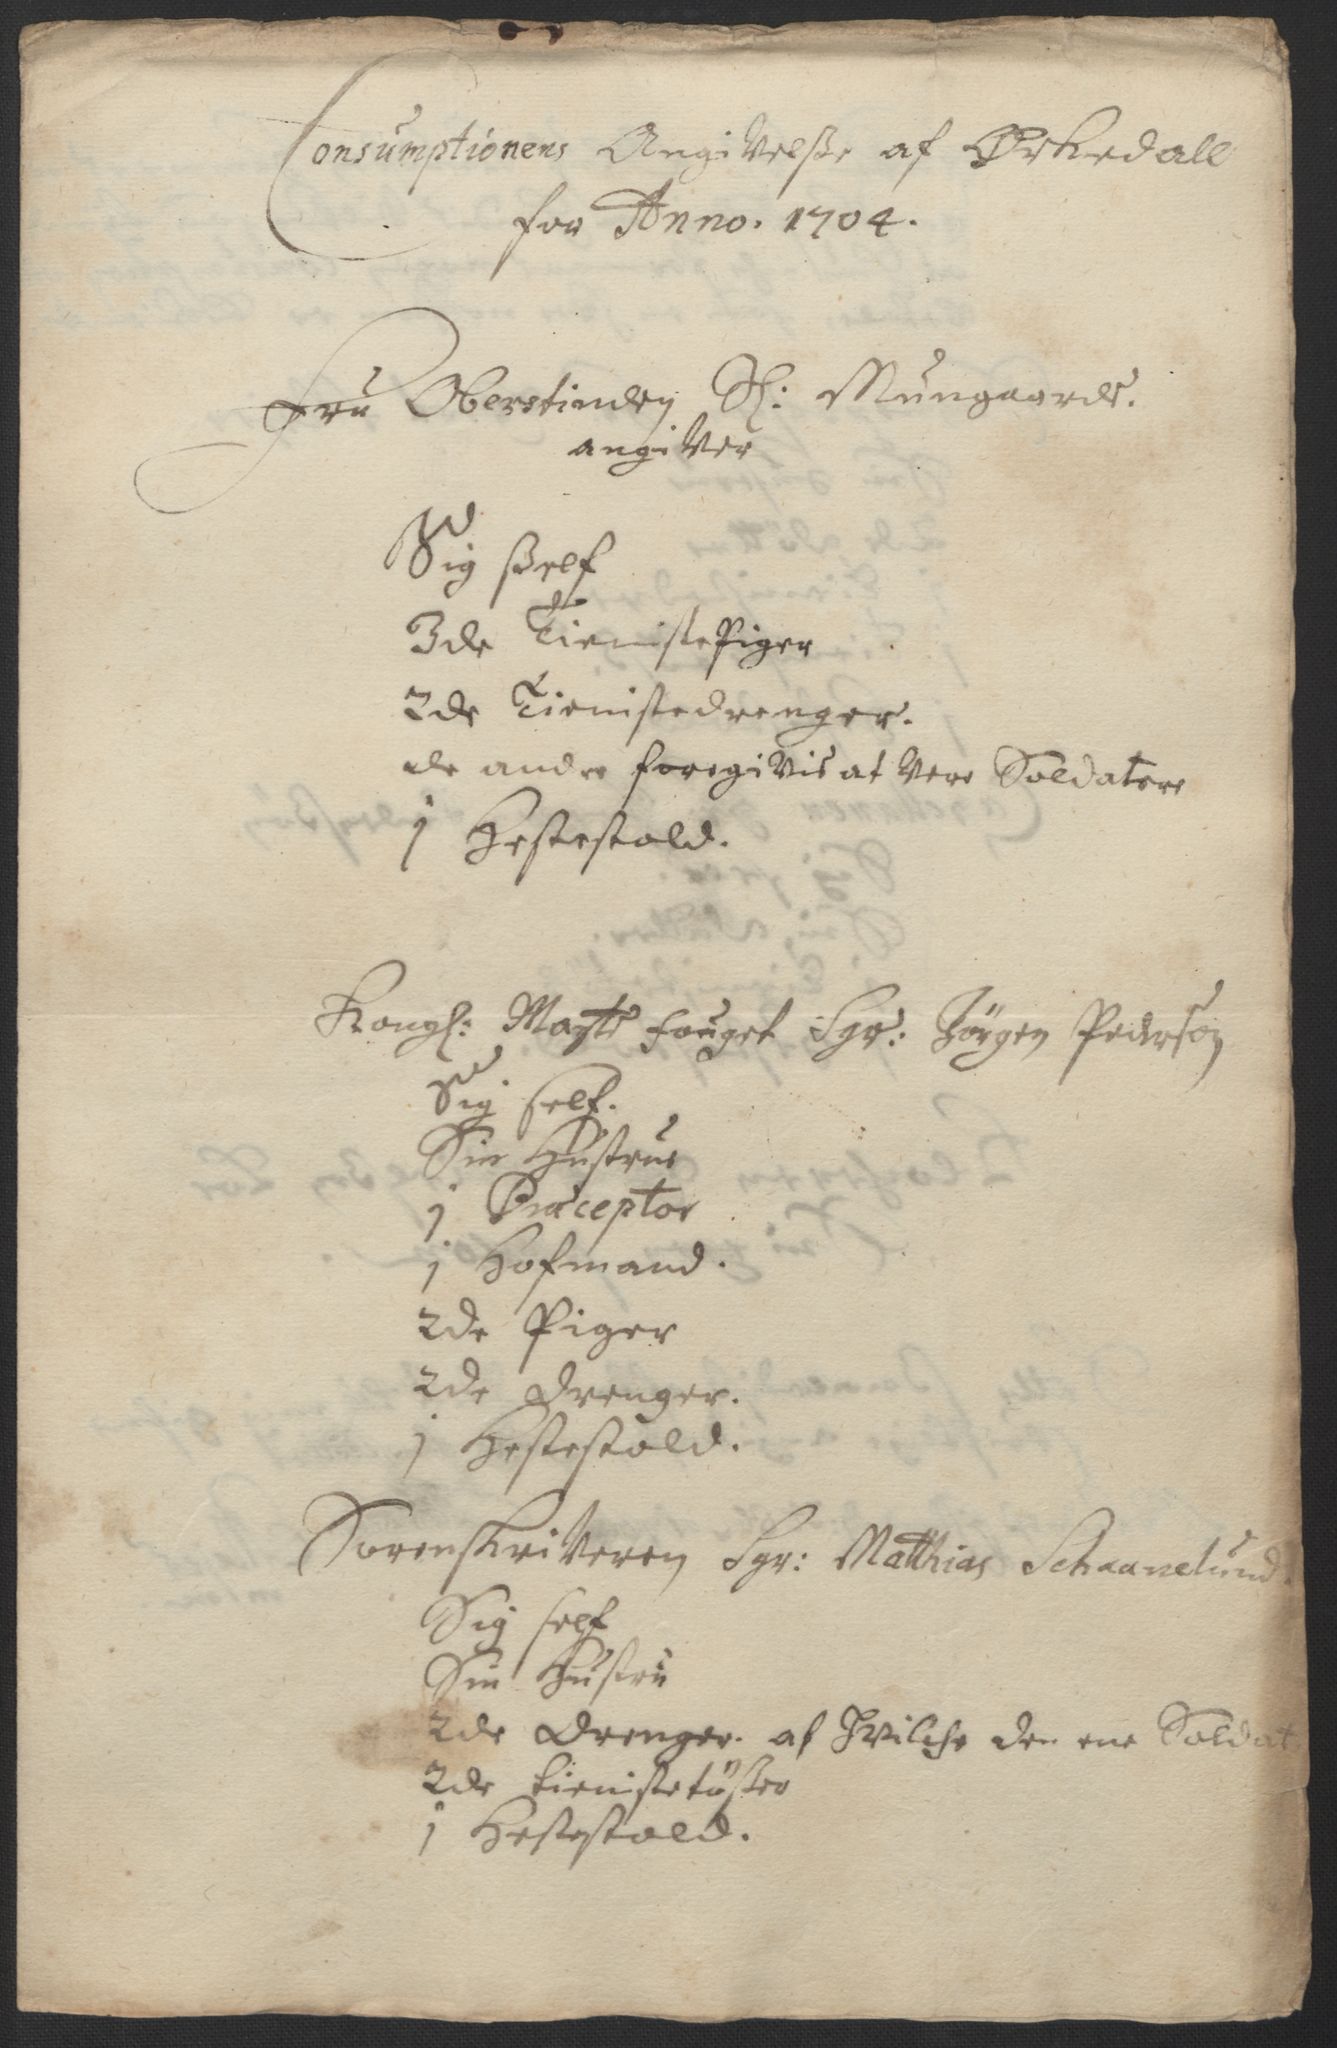 Consumptionens Angivelße af Ørkedall
for Anno. 1704.
Fru Oberstinden Sl: Mungaards.
angiver
Sig ßelf
3de TienistePiger
2de Tienistedrenger.
de andre foregivis at vere Soldatere
1 Hestestald.
Kongl: Mayts fouget Sgr: Jörgen Pedersøn
Sig self.
Sin Hustrue
1 Præceptor
1 Hofmand.
2de Piger
2de Drenger.
1 Hestestald.
Sorenskriveren Sgr: Matthias Schaanelund.
Sig self
Sin Hustru
2de Drenger. af Hvilche den ene Soldat
2de tienistetøßer
1 Hestestald.